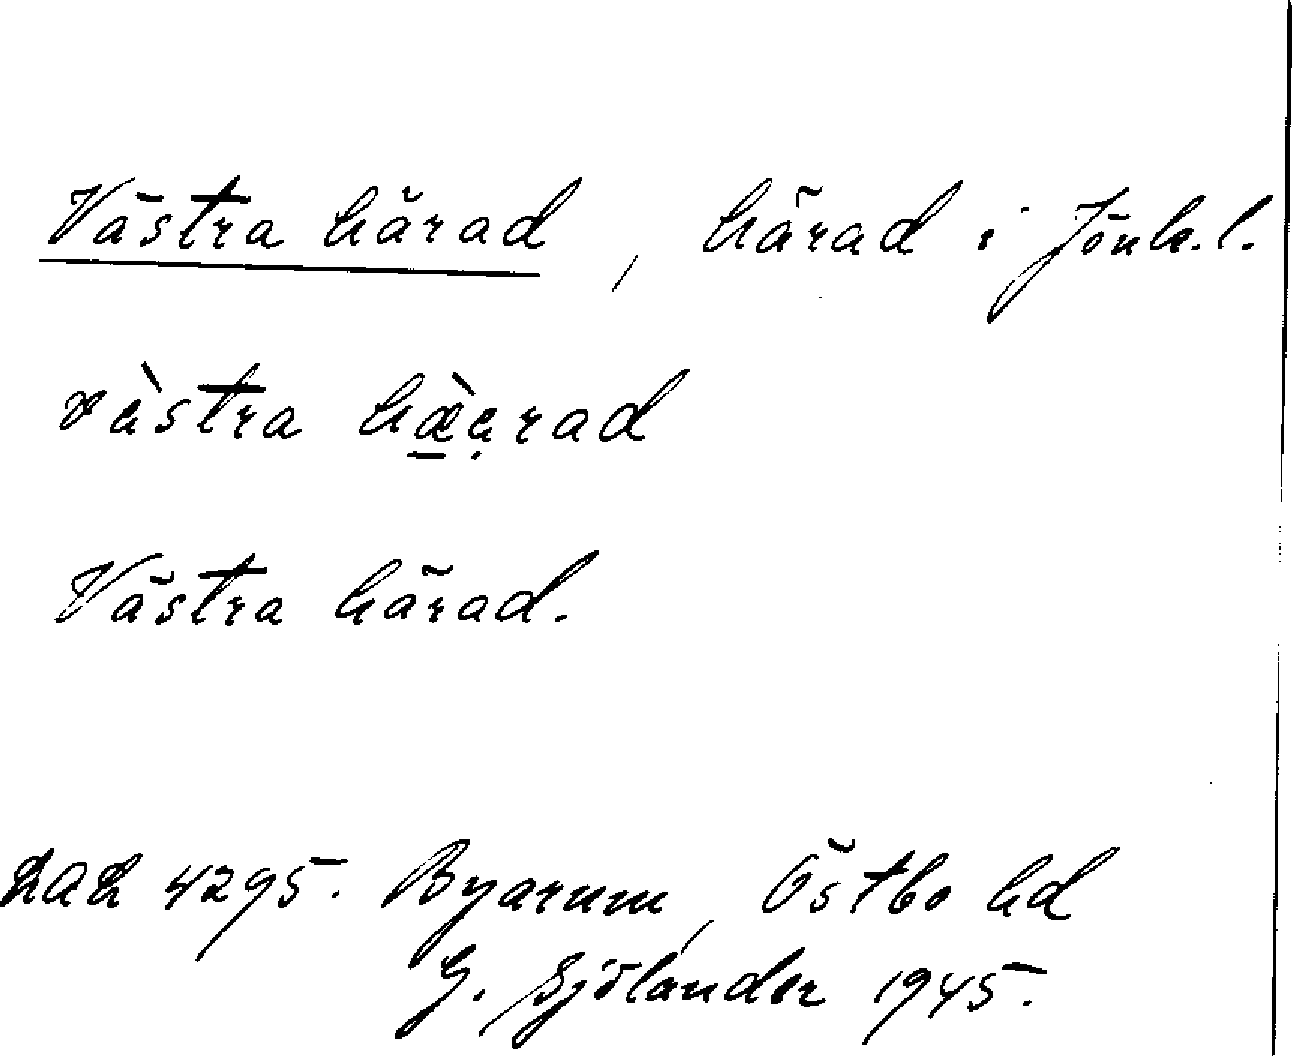 Västra härad, härad i Jönk.l.
vàstra hæ̠̀ạrad
Västra härad.
LAL 4295. Byarum, Östbo hd
G. Sjölander 1945.